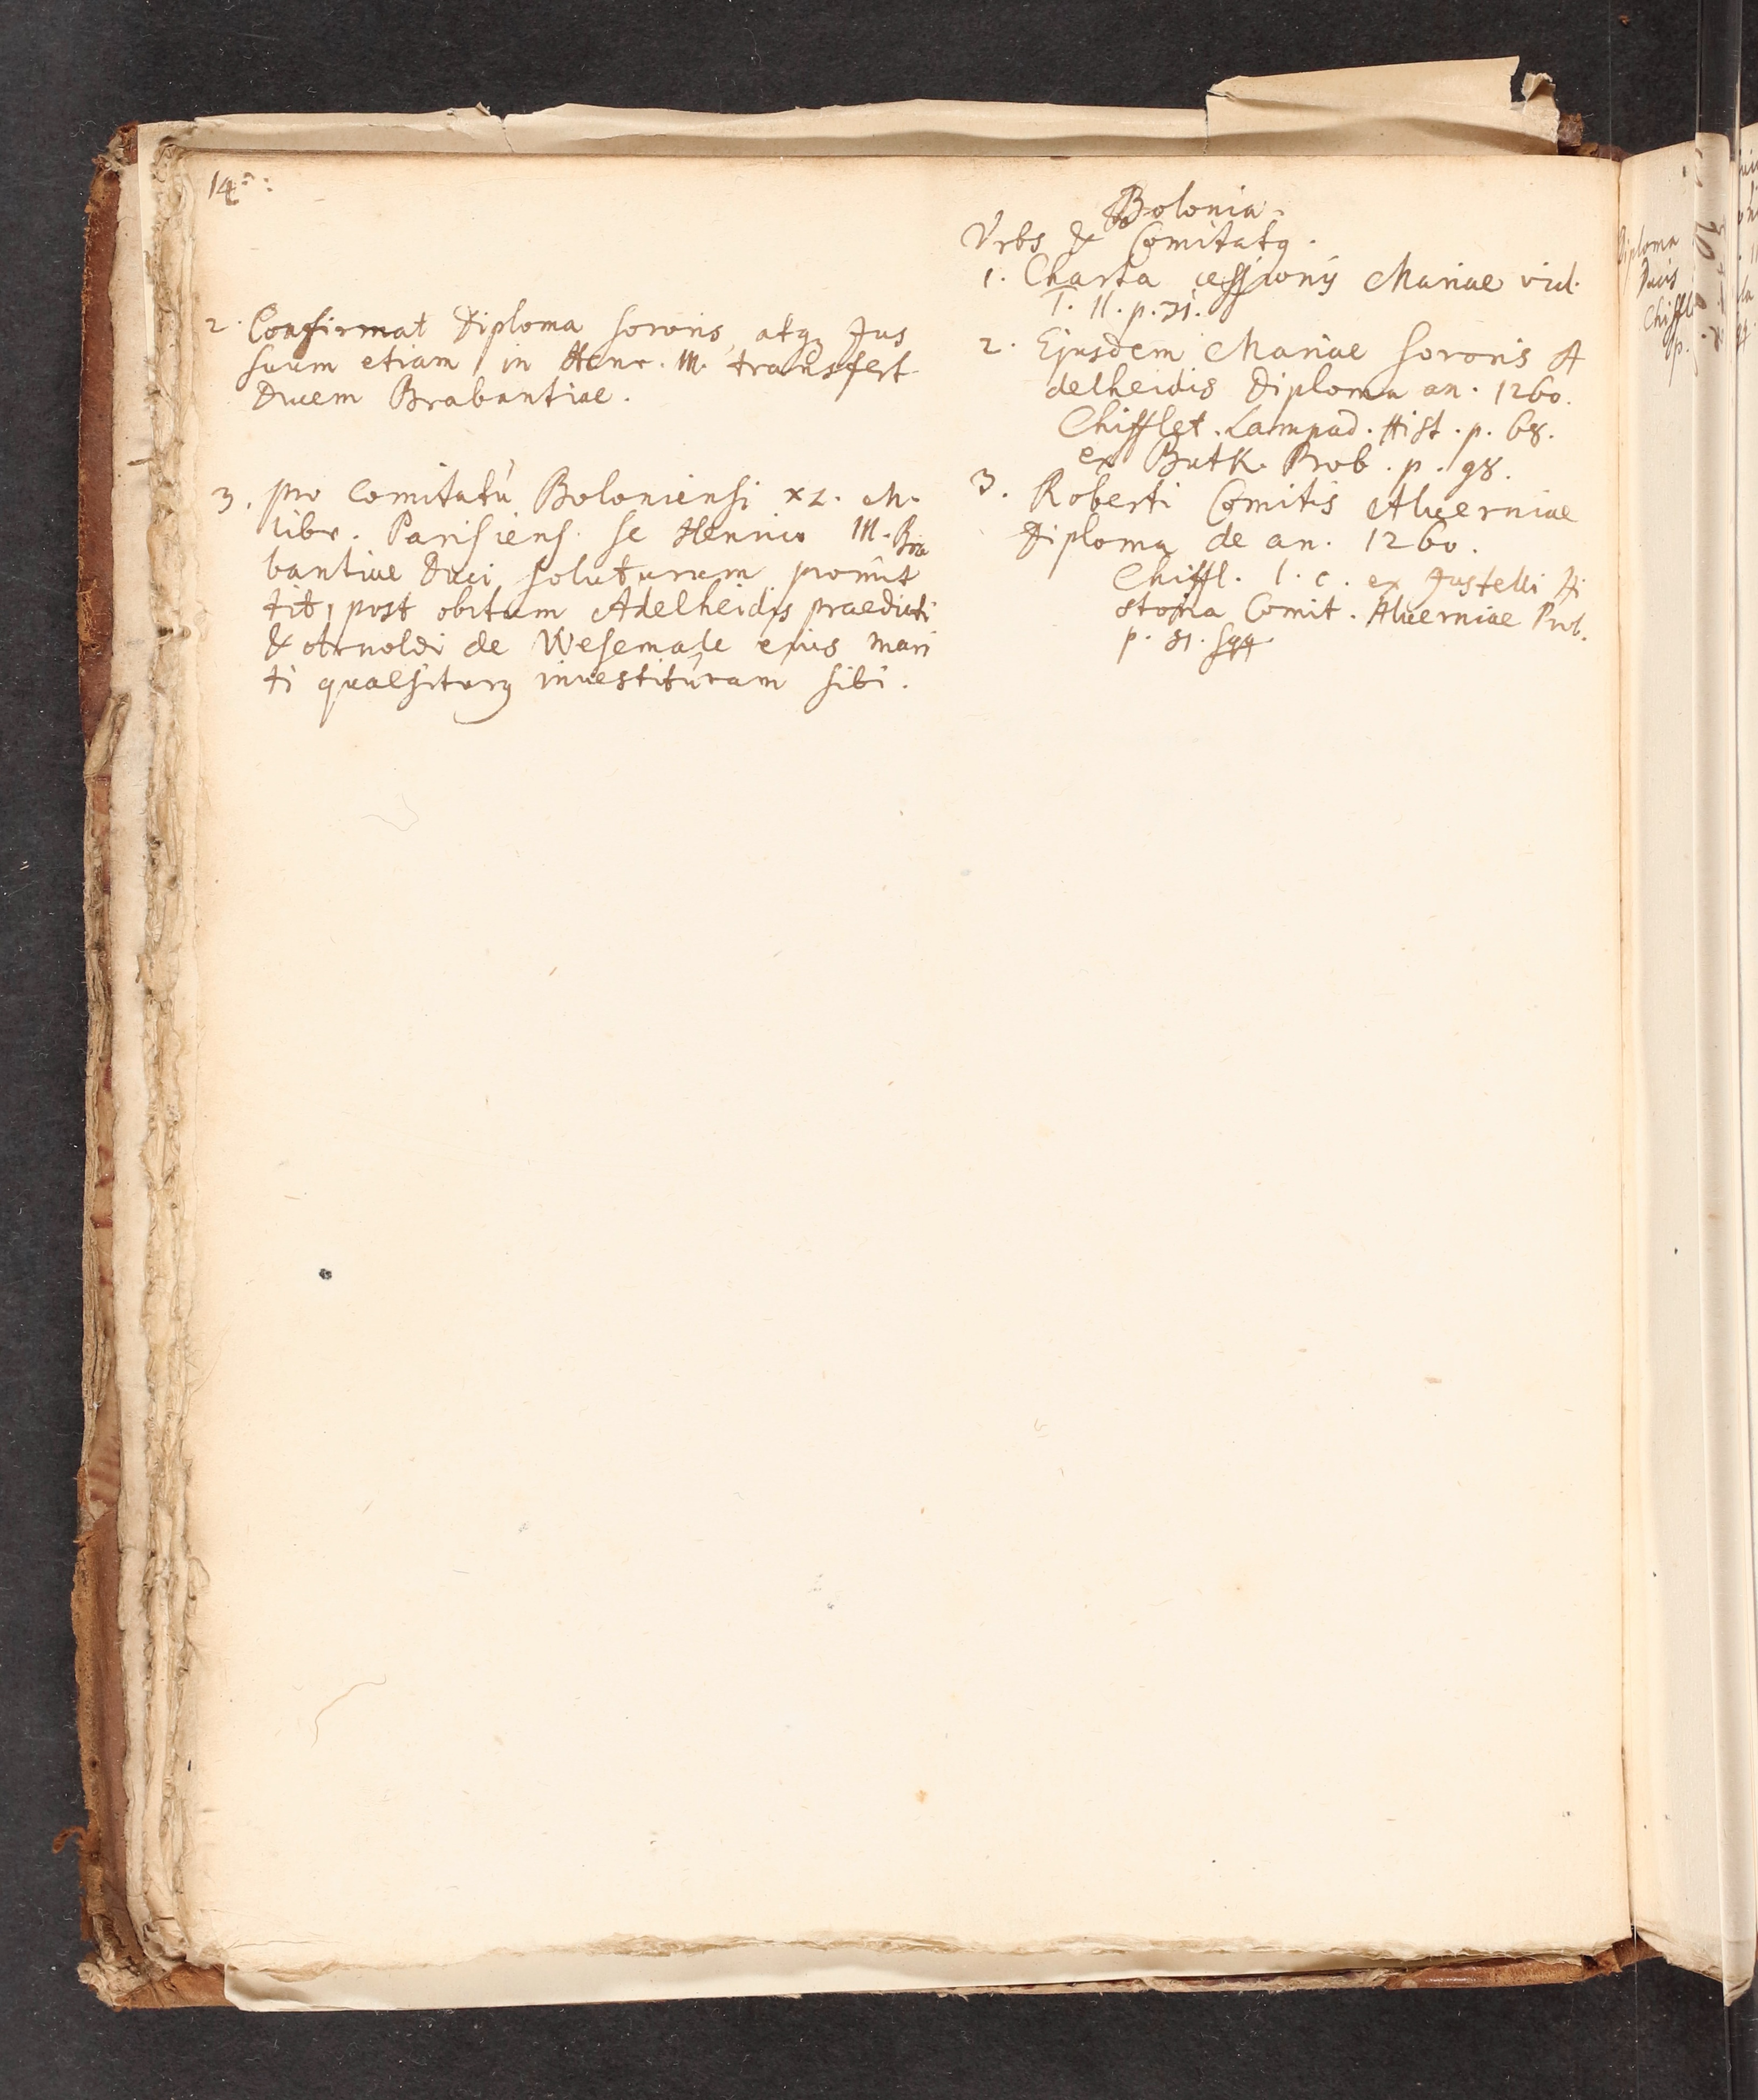 14
Bolonia.
Vrbs & Comitatq.
1. Charta cessionis Mariae vid.
T. II. p. 31.
2. Confirmat Diploma sororis, atq Jus
suum etiam in Henr. III. transfert
Ducem Brabantiae.
2. Ejusdem Mariae sororis A
delheidis Diploma an. 1260.
Chifflet. Lampad. Hist. p. 68.
ex Butk. Prob. p. 98.
3. pro Comitatu Boloniensi XL. M.
libr. Parisiens. se Henrico III. Bra
bantiae Duci soluturum promit
tit, post obitum Adelheidis praedicti
& Arnoldi de Wesemale ejus mari
ti quaesiturq investituram sibi.
3. Roberti Comitis Alverniae
Diploma de an. 1260.
Chiffl. l. c. ex Justelli Hi
storia Comit. Alverniae Prob.
p. 81. sqq.
Diploma
Ducis
Chiffl
p.